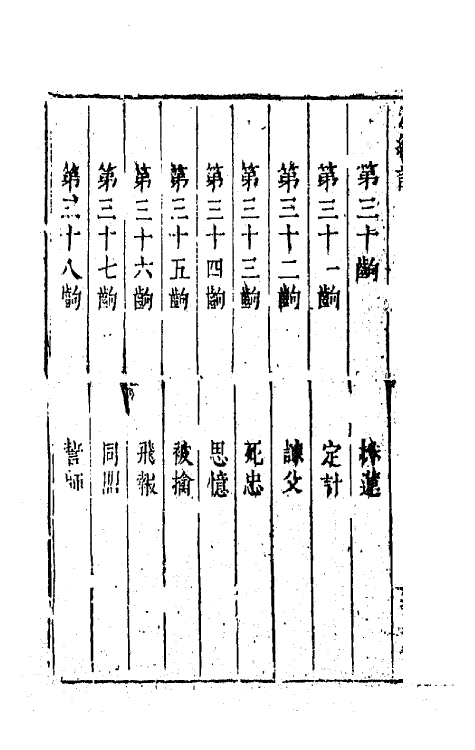 第三十齣 採蓮
第三十一齣 定計
第三十二齣 諫父
第三十三齣 死忠
第三十四齣 思憶
第三十五齣 被擒
第三十六齣 飛報
第三十七齣 同盟
第三十八齣 誓師